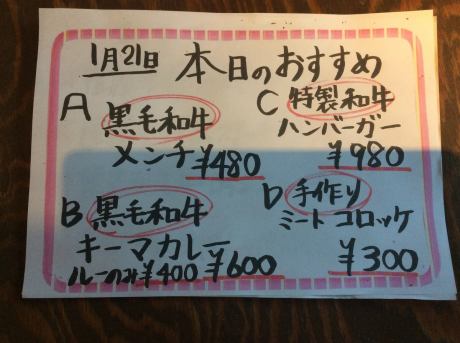 1月21日 本日のおすすめ
A 黒毛和牛
メンチ ¥480
B 黒毛和牛
キーマカレー
ルーのみ ¥400 ¥600
C 特製和牛
ハンバーガー
¥980
D 手作り
ミートコロッケ
¥300